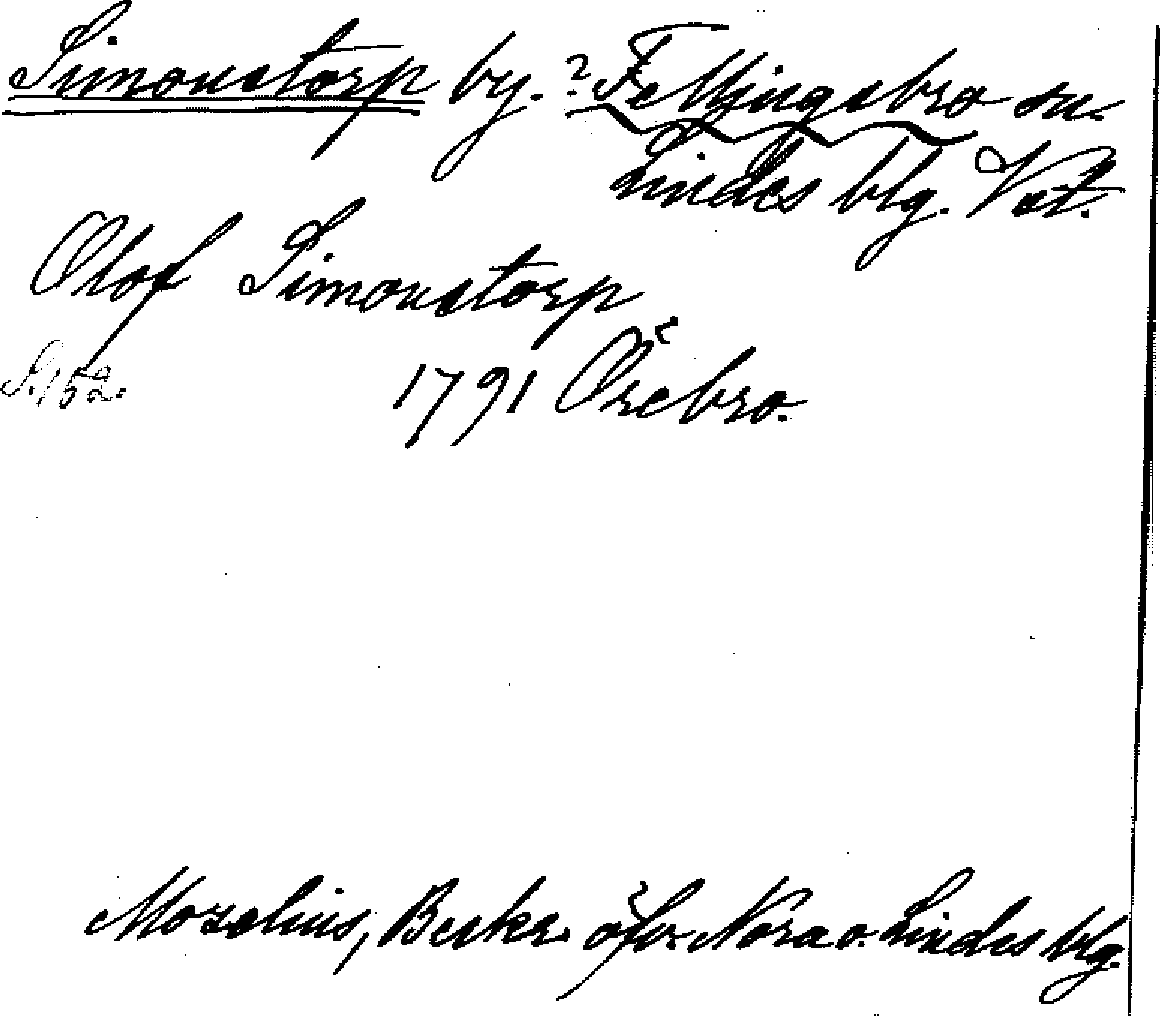 Simonstorp by. ? Fellingsbro sn.
Lindes blg. Vstl.
Olof Simonstorp
S. 152. 1791 Örebro.
Mozelius, Beskr. öfv. Nora o. Lindes blg.